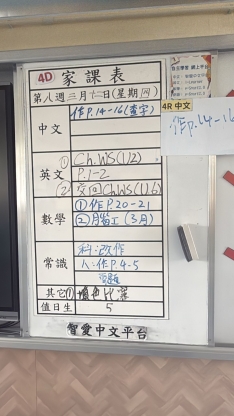 4D 家課表
第八週三月十二日(星期四)
中文 作P.14-16(查字)
英文 ① Ch.WS(1/2)
P.1-2
② 交回Ch.WS(1/6)
數學 ① 作P.20-21
② 月(3月)
常識 科:改作
人:作P.4-5
其它
值日生 5
智愛中文平台
4R 中文
作p.14-16